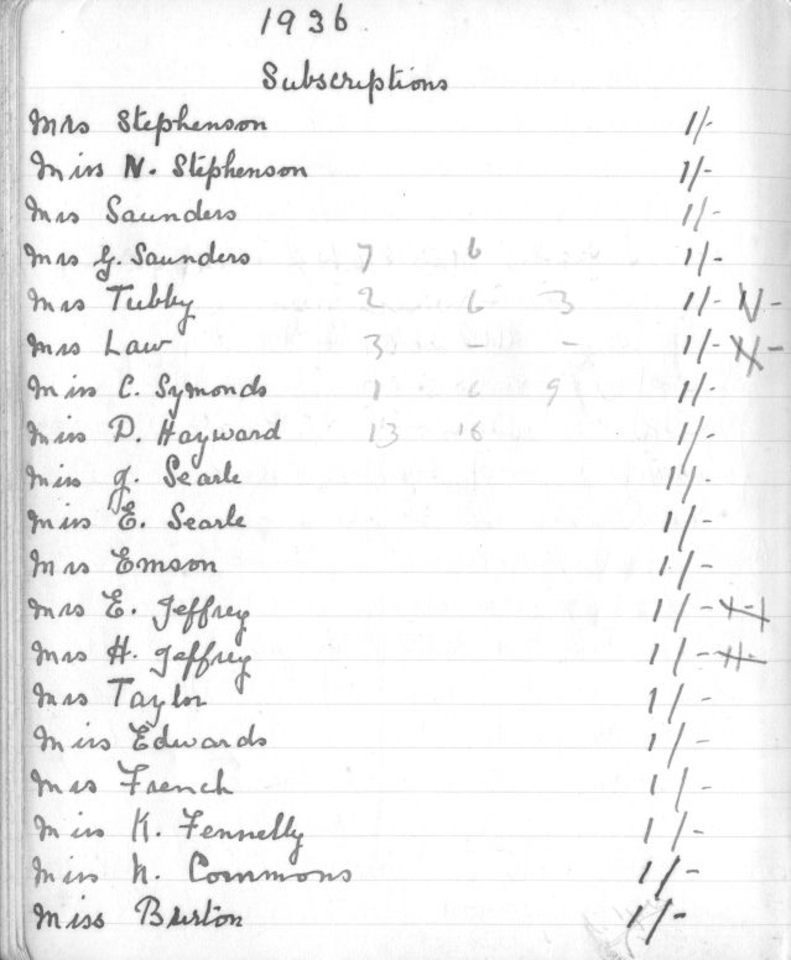 1936
Subscriptions
Mrs Stephenson 1/-
Miss N. Stephenson 1/-
Mrs Saunders 1/-
Mrs G. Saunders 7 16 1/-
Mrs Tubby 2 6 3 1/-
Mrs Law 3 - - 1/-
Miss C. Symonds 1 6 9 1/-
Miss D. Hayward 13 16 1/-
Miss J. Searle 1/-
Miss E. Searle 1/-
Mrs Emson 1/-
Mrs E. Jeffrey 1/-
Mrs H. Jeffrey 1/-
Mrs Taylor 1/-
Miss Edwards 1/-
Mrs French 1/-
Miss K. Fennelly 1/-
Miss N. Commons 1/-
Miss Burton 1/-